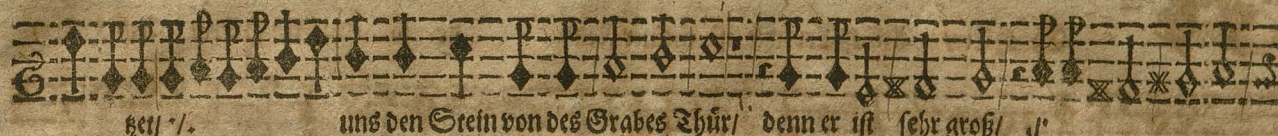 tzet/ ·/. uns den Stein von des Grabes Thür/ denn er ist sehr groß/ ·/·